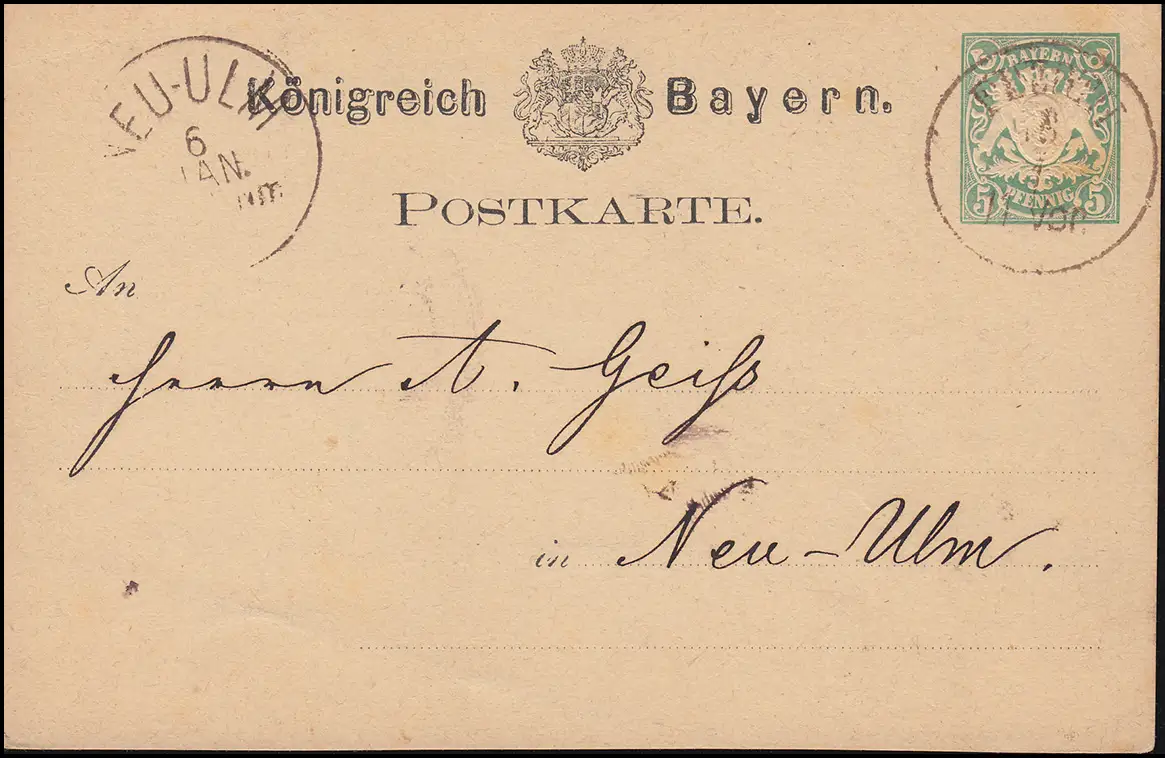 NEU-ULM
6
JAN.
Königreich Bayern.
BAYERN
5 PFENNIG 5
11 Vor.
POSTKARTE.
An
Herrn A. Geiß
in Neu-Ulm.